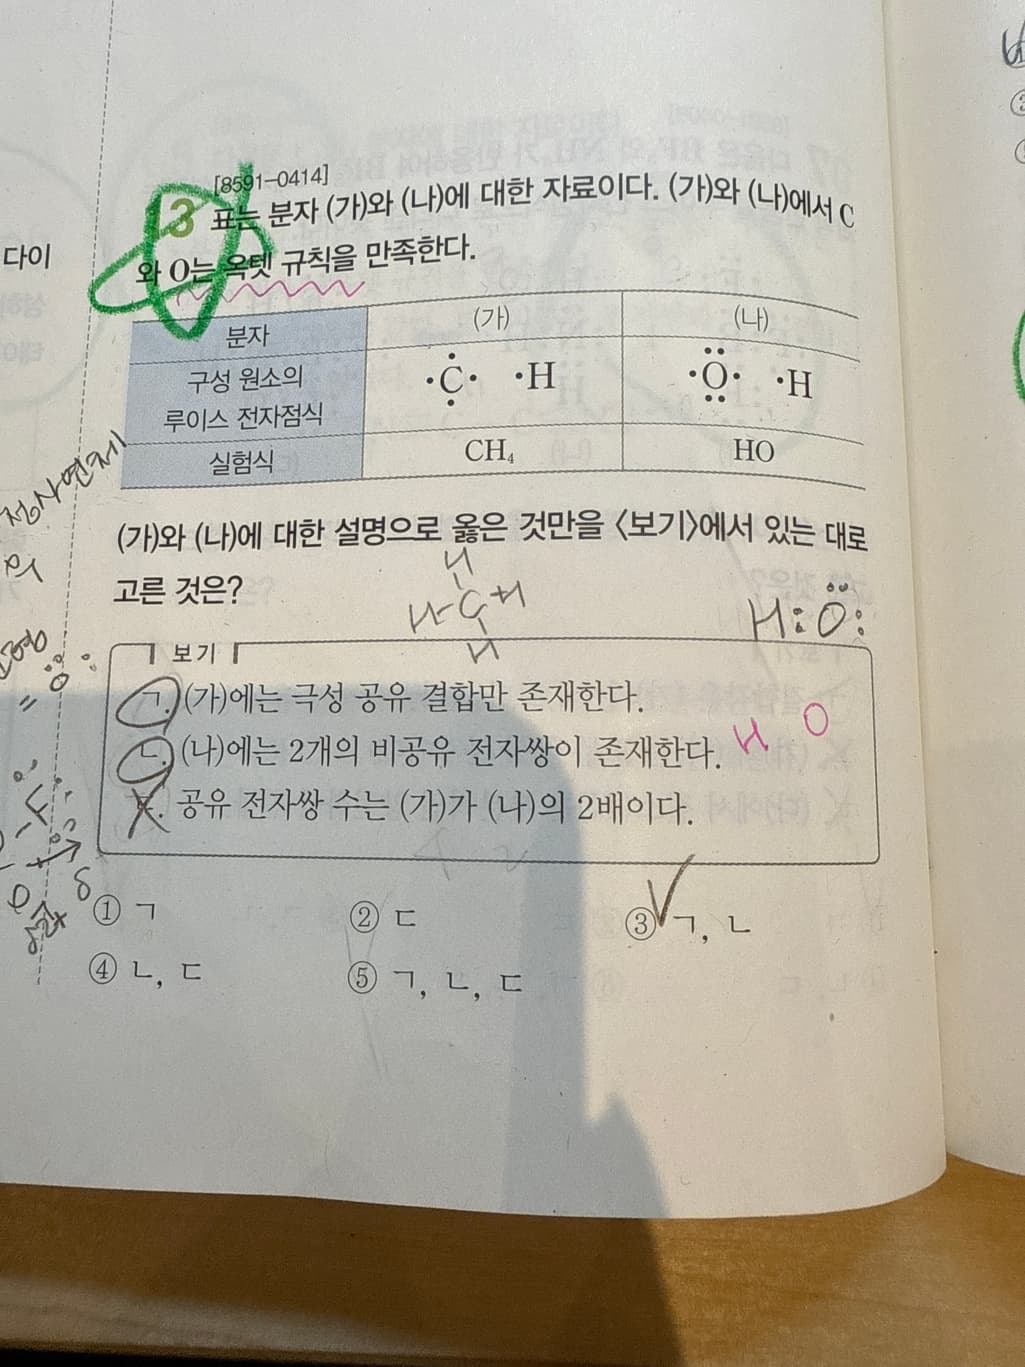 [8591-0414]
13 표는 분자 (가)와 (나)에 대한 자료이다. (가)와 (나)에서 C
와 O는 옥텟 규칙을 만족한다.
다이
분자 (가) (나)
구성 원소의 루이스 전자점식 ·C· ·H ·O· ·H
실험식 CH₄ HO
(가)와 (나)에 대한 설명으로 옳은 것만을 〈보기〉에서 있는 대로
고른 것은?
H
H-C-H
H
H:O:
보기
ㄱ. (가)에는 극성 공유 결합만 존재한다.
ㄴ. (나)에는 2개의 비공유 전자쌍이 존재한다.
H O
ㄷ. 공유 전자쌍 수는 (가)가 (나)의 2배이다.
① ㄱ ② ㄷ ③ ㄱ, ㄴ
④ ㄴ, ㄷ ⑤ ㄱ, ㄴ, ㄷ